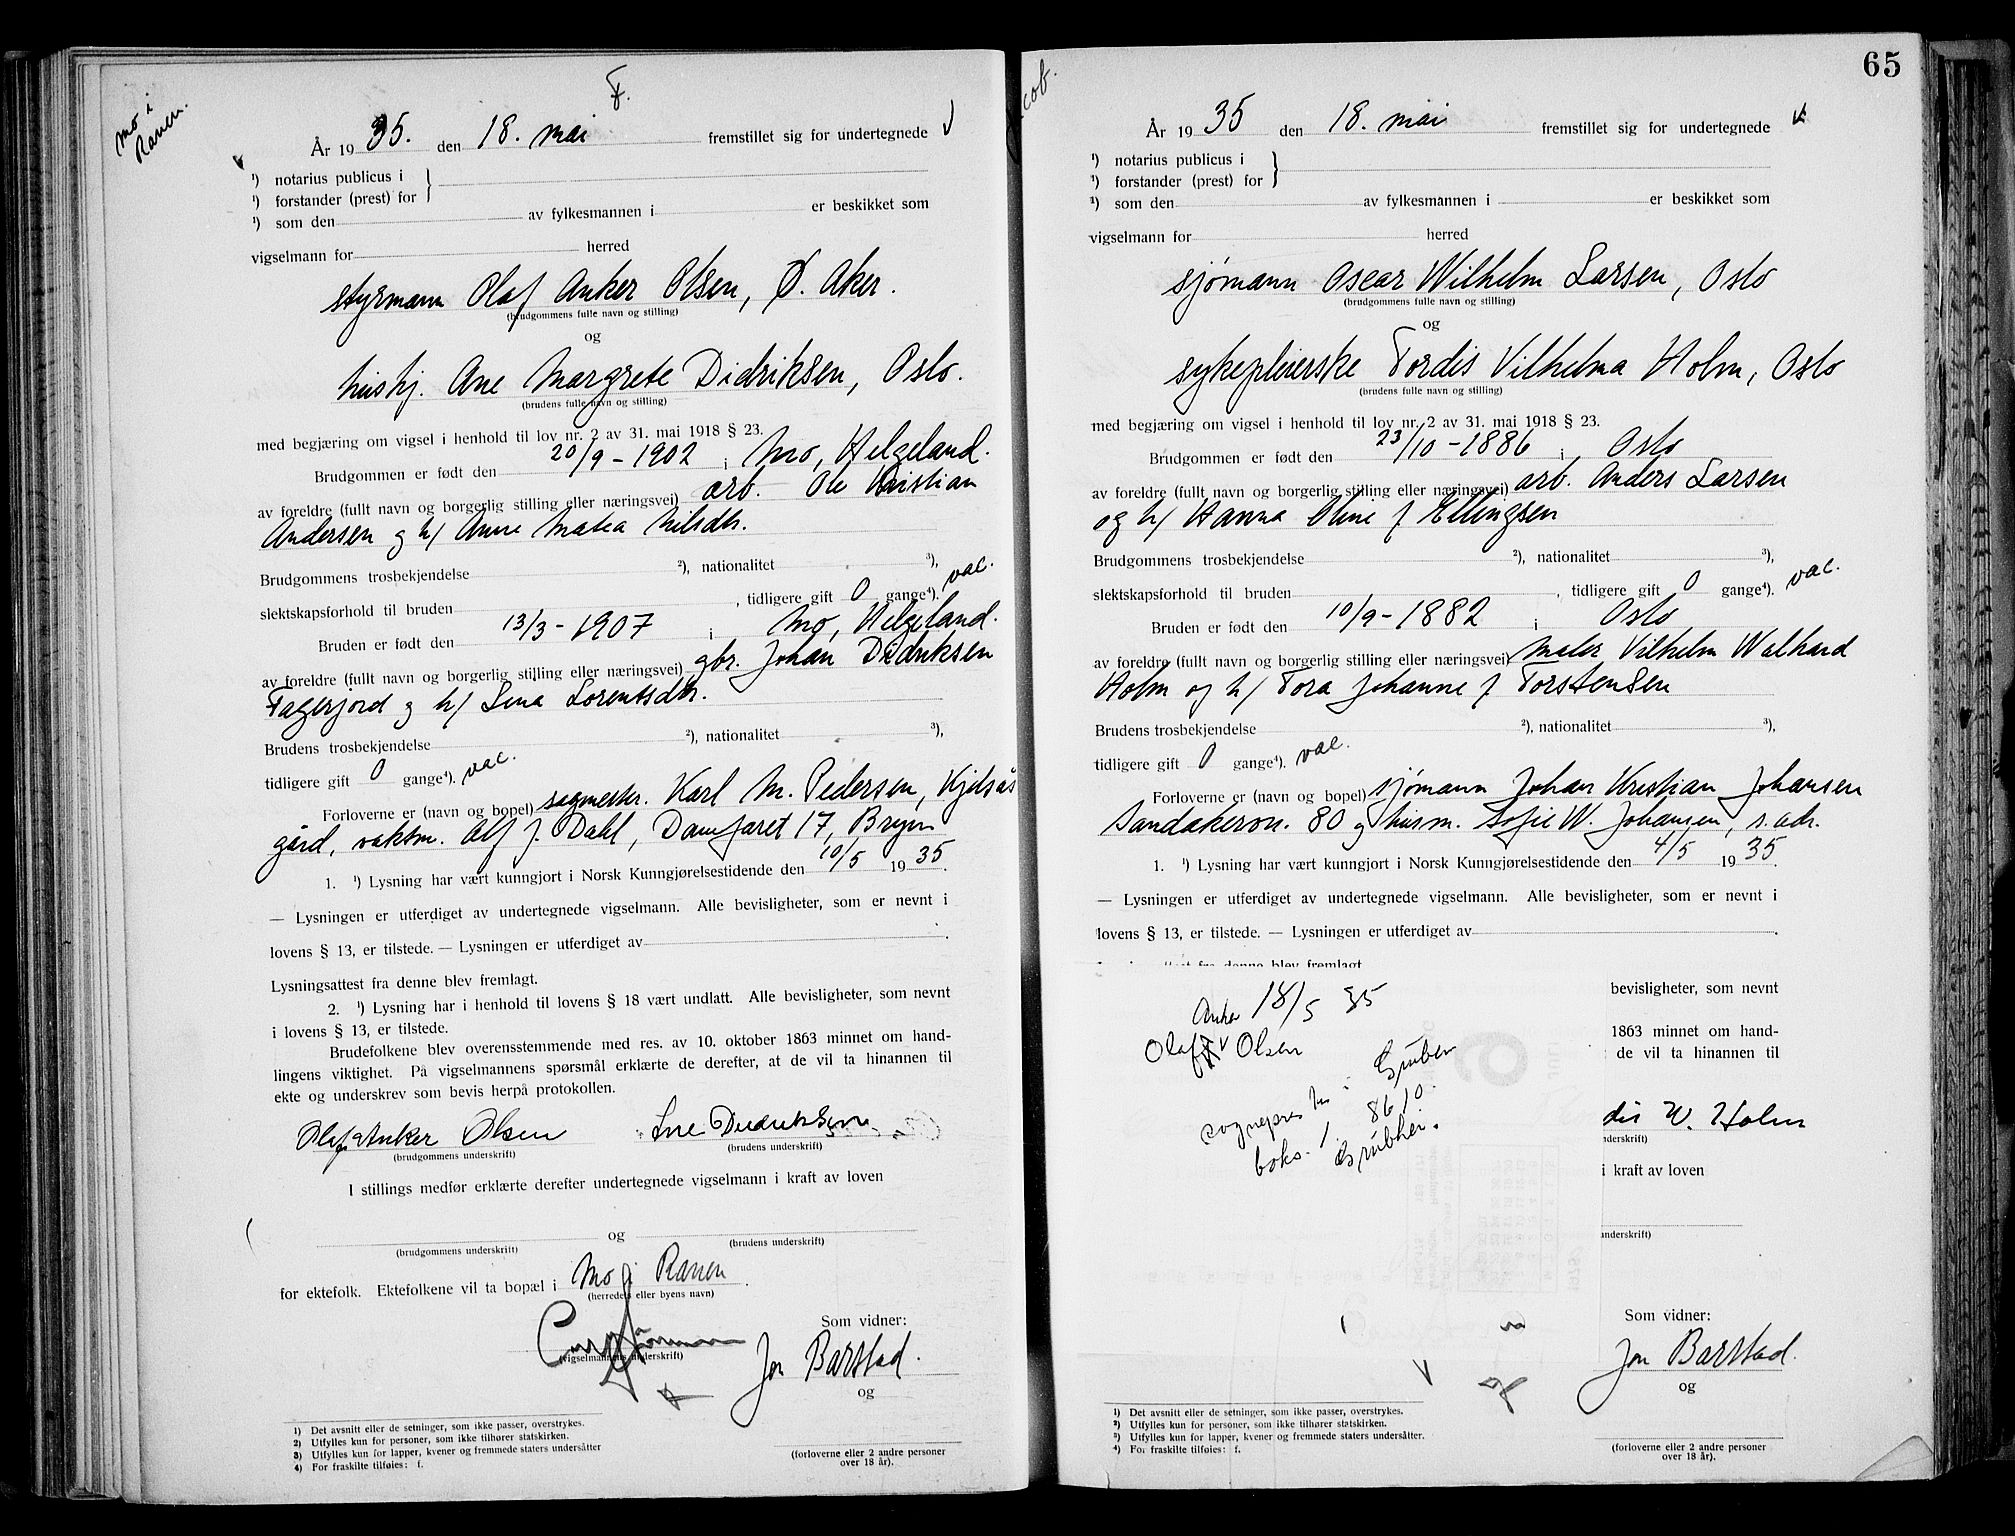 mo i
Ranen.
År 1935. den 18. mai fremstillet sig for undertegnede
¹) notarius publicus i
¹) forstander (prest) for
¹) som den av fylkesmannen i er beskikket som
vigselmann for herred
styrmann Olaf Anker Olsen, Ø. Aker.
(brudgommens fulle navn og stilling)
og
hushj. Ane Margrete Didriksen, Oslo.
(brudens fulle navn og stilling)
med begjæring om vigsel i henhold til lov nr. 2 av 31. mai 1918 § 23.
Brudgommen er født den 20/9 - 1902 i Mo, Helgeland.
av foreldre (fullt navn og borgerlig stilling eller næringsvei) arb. Ole Kristian
Andersen og h/ Anne Matea Nilsdtr.
Brudgommens trosbekjendelse ²), nationalitet ³),
slektskapsforhold til bruden , tidligere gift 0 gange⁴). vac.
Bruden er født den 13/3 - 1907 i Mo, Helgeland.
av foreldre (fullt navn og borgerlig stilling eller næringsvei) gbr. Johan Didriksen
Fagerjord og h/ Lena Lorentsdtr.
Brudens trosbekjendelse ²), nationalitet ³),
tidligere gift 0 gange⁴). vac.
Forloverne er (navn og bopel) sagmester. Karl M. Pedersen, Kjelsås
gård, vaktm. Alf J. Dahl, Damfaret 17, Bryn
1. ¹) Lysning har vært kunngjort i Norsk Kunngjørelsestidende den 10/5 1935.
— Lysningen er utferdiget av undertegnede vigselmann. Alle bevisligheter, som er nevnt i
lovens § 13, er tilstede. — Lysningen er utferdiget av .
Lysningsattest fra denne blev fremlagt.
2. ¹) Lysning har i henhold til lovens § 18 vært undlatt. Alle bevisligheter, som nevnt
i lovens § 13, er tilstede.
Brudefolkene blev overensstemmende med res. av 10. oktober 1863 minnet om hand-
lingens viktighet. På vigselmannens spørsmål erklærte de derefter, at de vil ta hinannen til
ekte og underskrev som bevis herpå protokollen.
Olaf Anker Olsen Ane Didriksen
(brudgommens underskrift) (brudens underskrift)
I stillings medfør erklærte derefter undertegnede vigselmann i kraft av loven
og
(brudgommens underskrift) (brudens underskrift)
for ektefolk. Ektefolkene vil ta bopæl i Mo i Ranen
(herredets eller byens navn)
Som vidner:
(vigselmannens underskrift)
Jon Barstad.
og
1) Det avsnitt eller de setninger, som ikke passer, overstrykes.
2) Utfylles kun for personer, som ikke tilhører statskirken.
3) Utfylles kun for lapper, kvener og fremmede staters undersåtter
4) For fraskilte tilføies: f.
(forloverne eller 2 andre personer
over 18 år).
65
cob.
År 1935 den 18. mai fremstillet sig for undertegnede
¹) notarius publicus i
¹) forstander (prest) for
¹) som den av fylkesmannen i er beskikket som
vigselmann for herred
sjømann Oscar Wilhelm Larsen, Oslo
(brudgommens fulle navn og stilling)
og
sykepleierske Tordis Vilhelma Holm, Oslo
(brudens fulle navn og stilling)
med begjæring om vigsel i henhold til lov nr. 2 av 31. mai 1918 § 23.
Brudgommen er født den 23/10 - 1886 i Oslo
av foreldre (fullt navn og borgerlig stilling eller næringsvei) arb. Anders Larsen
og h/ Hanna Oline f Ellingsen
Brudgommens trosbekjendelse ²), nationalitet ³),
slektskapsforhold til bruden , tidligere gift 0 gange⁴). vac.
Bruden er født den 10/9 - 1882 i Oslo
av foreldre (fullt navn og borgerlig stilling eller næringsvei) maler Vilhelm Walhard
Holm og h/ Tora Johanne f Torstensen
Brudens trosbekjendelse ²), nationalitet ³),
tidligere gift 0 gange⁴). vac.
Forloverne er (navn og bopel) sjømann Johan Kristian Johansen
Sandakervn. 80 og husm. Sofie W. Johansen, s. adr.
1. ¹) Lysning har vært kunngjort i Norsk Kunngjørelsestidende den 4/5 1935.
— Lysningen er utferdiget av undertegnede vigselmann. Alle bevisligheter, som er nevnt i
lovens § 13, er tilstede. — Lysningen er utferdiget av .
fra denne blev fremlagt
bevisligheter, som nevnt
Anker 18/5 35
Olaf Olsen
1863 minnet om hand-
de vil ta hinannen til
sogneprest i Gruben
boks. 1. 8610.
Grubhei.
dis W. Holm
nderskrift)
i kraft av loven
underskrift)
Som vidner:
Jon Barstad.
og
1) Det avsnitt eller de setninger, som ikke passer, overstrykes.
2) Utfylles kun for personer, som ikke tilhører statskirken.
3) Utfylles kun for lapper, kvener og fremmede staters undersåtter.
4) For fraskilte tilføies: f.
(forloverne eller 2 andre personer
over 18 år).